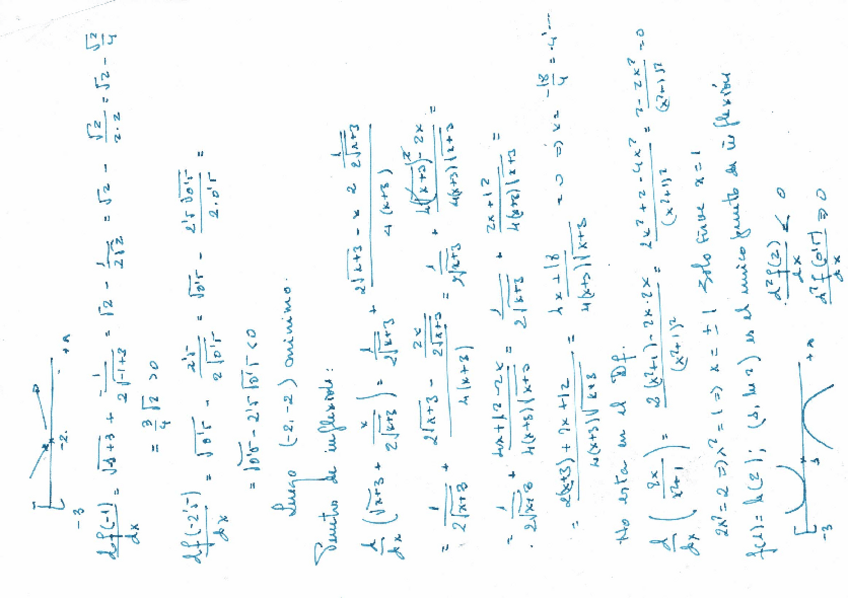 -3 -2 +∞
df(-1)/dx = √(-1+3) + (-1)/(2√(-1+3)) = √2 - 1/(2√2) = √2 - √2/(2·2) = √2 - √2/4
= 3/4 √2 > 0
df(-2'5)/dx = √0'5 - 2'5/(2√0'5) = √0'5 - 2'5√0'5/(2·0'5) =
= √0'5 - 2'5√0'5 < 0
Luego (-2, -2) mínimo.
Puntos de inflexión:
d/dx (√(x+3) + x/(2√(x+3))) = 1/(2√(x+3)) + (2√(x+3) - x 2 1/(2√(x+3)))/(4(x+3))
= 1/(2√(x+3)) + (2√(x+3) - 2x/(2√(x+3)))/(4(x+3)) = 1/(2√(x+3)) + (4(x+3) - 2x)/(4(x+3)√(x+3)) =
= 1/(2√(x+3)) + (4x+12-2x)/(4(x+3)√(x+3)) = 1/(2√(x+3)) + (2x+12)/(4(x+3)√(x+3)) =
= (2(x+3) + 2x+12)/(4(x+3)√(x+3)) = (4x+18)/(4(x+3)√(x+3)) = 0 ⇒ x = -18/4 = -4'...
No esta en el Df.
d/dx (2x/(x²+1)) = (2(x²+1) - 2x·2x)/(x²+1)² = (2x²+2-4x²)/(x²+1)² = (2-2x²)/(x²+1)² = 0
2x² = 2 ⇒ x² = 1 ⇒ x = ±1 Solo sirve x = 1
f(1) = ln(2); (1, ln 2) es el unico punto de inflexión
-3 1 +∞
d²f(2)/dx < 0
d²f(0'5)/dx > 0